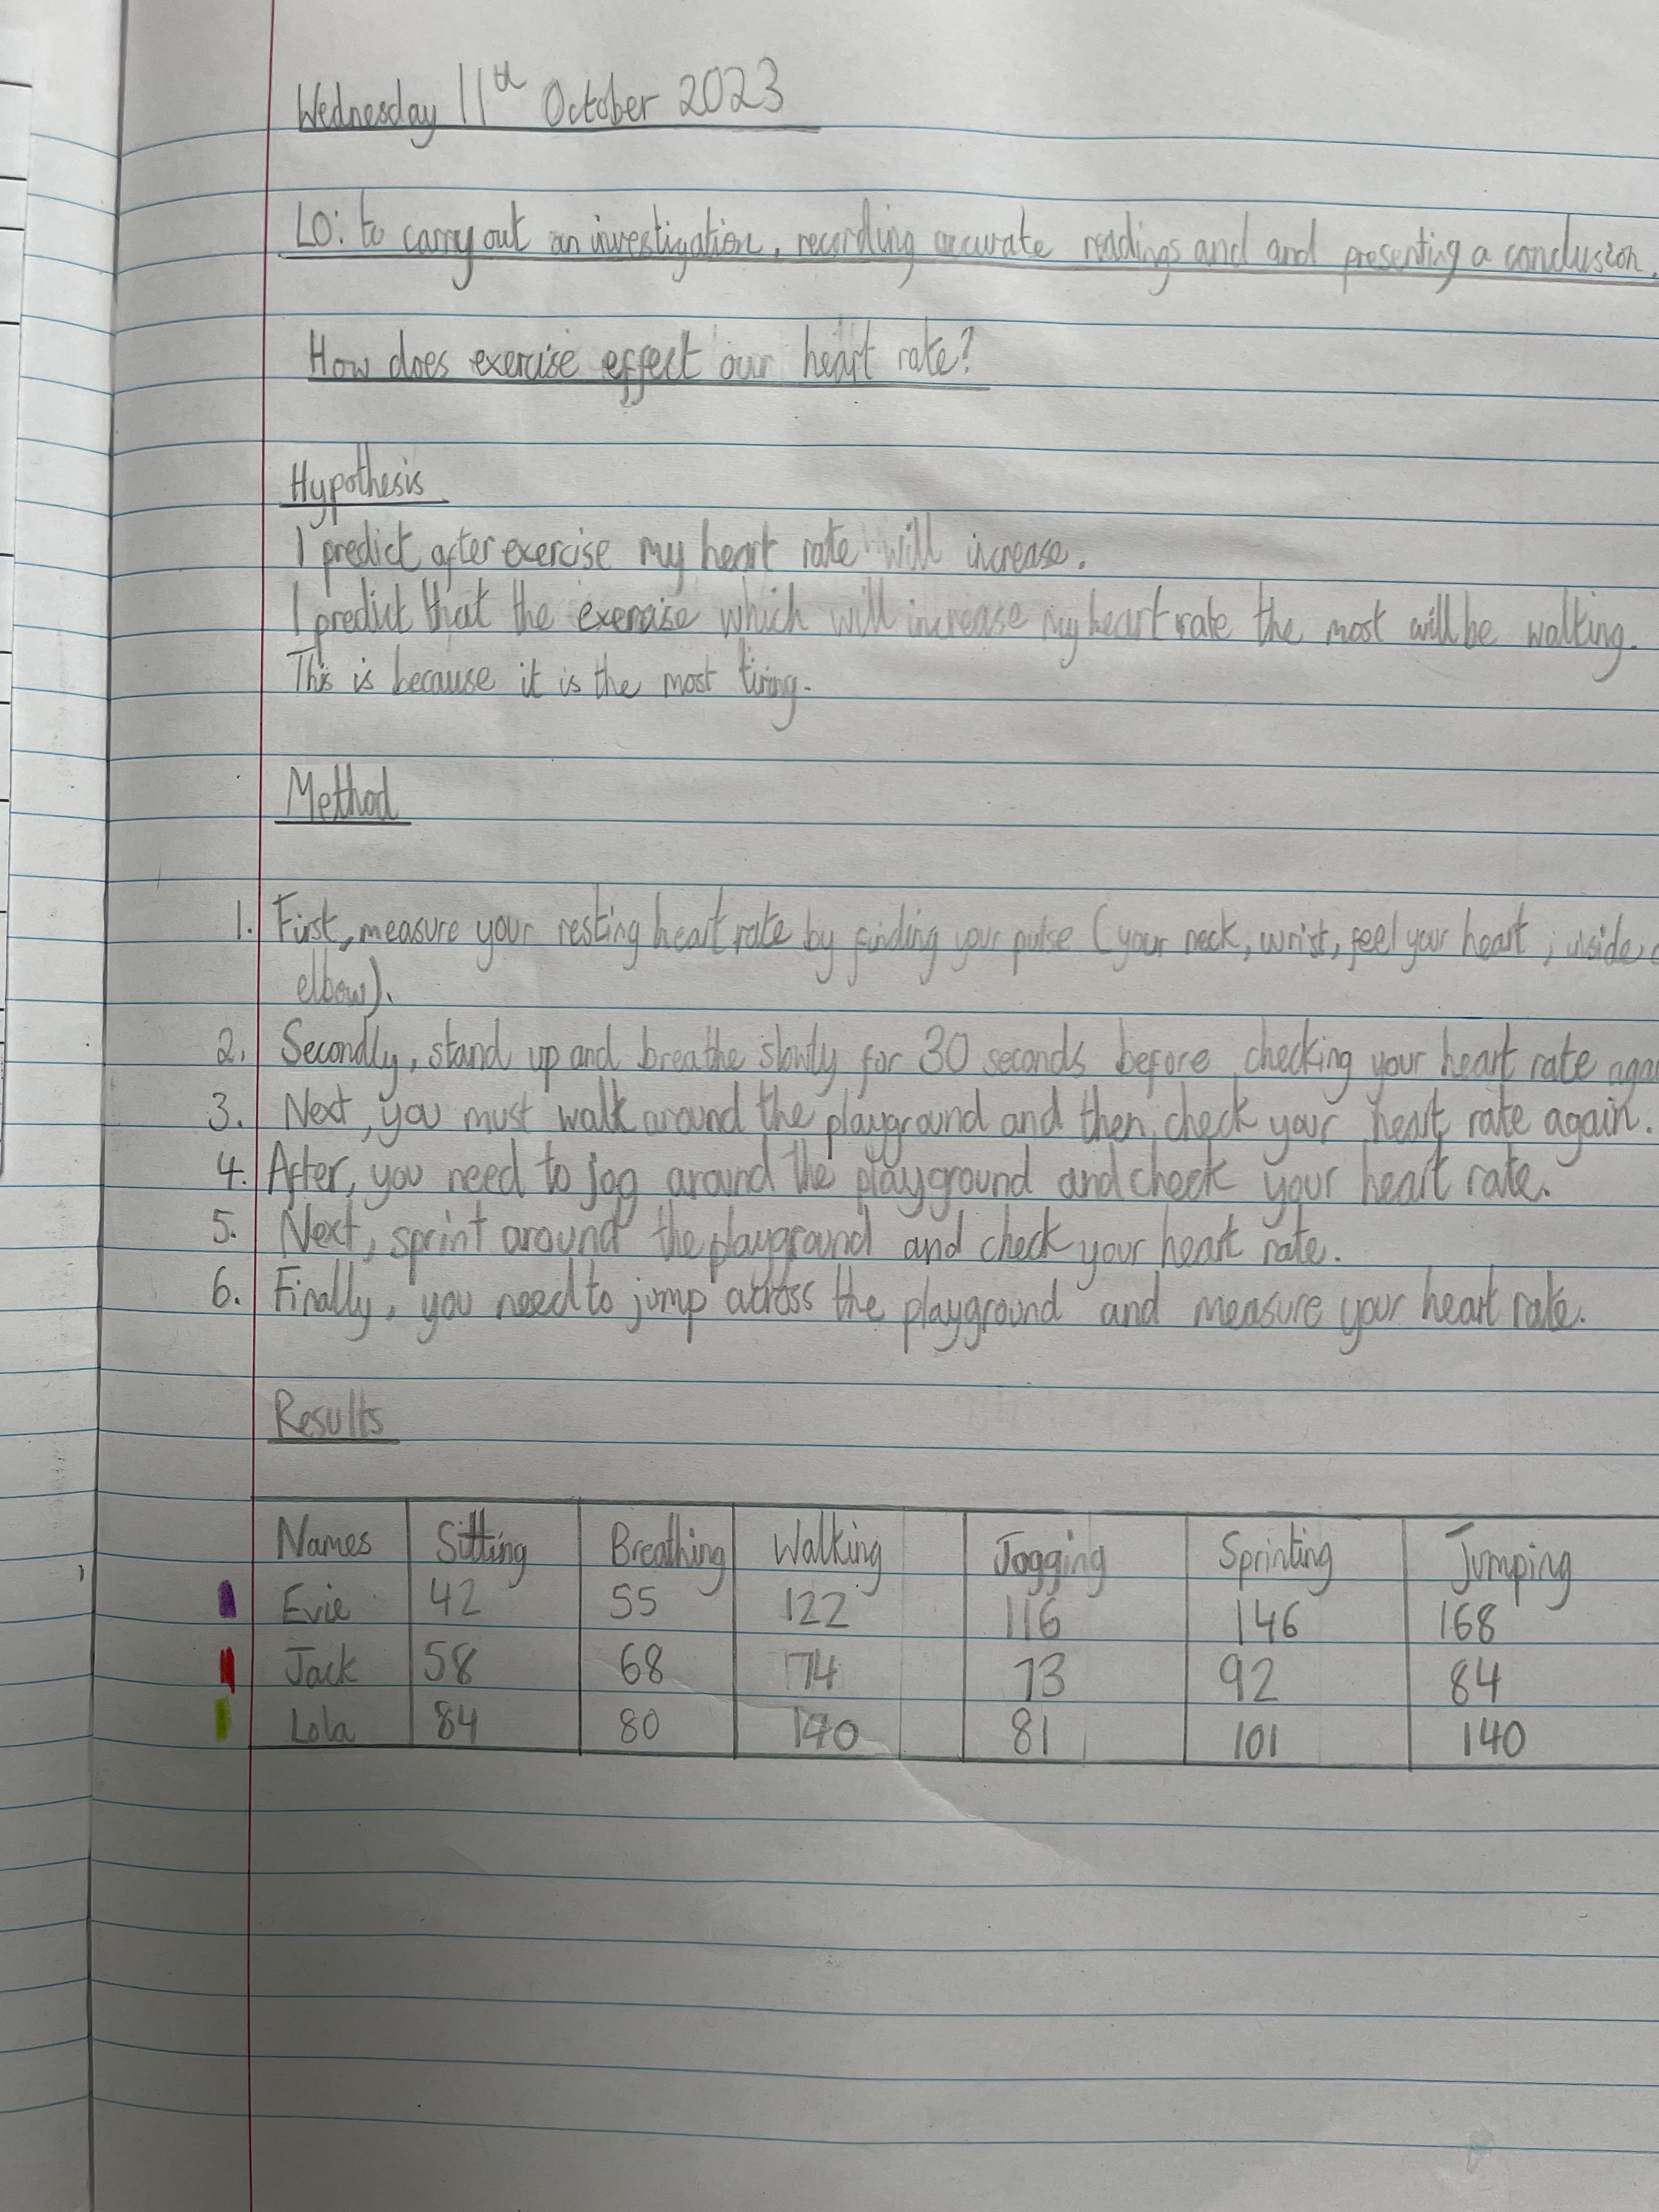 Wednesday 11th October 2023
LO: to carry out an investigation, recording accurate readings and and presenting a conclusion.
How does exercise effect our heart rate?
Hypothesis
I predict after exercise my heart rate will increase.
I predict that the exercise which will increase my heart rate the most will be walking.
This is because it is the most tiring.
Method
1. First, measure your resting heart rate by finding your pulse (your neck, wrist, feel your heart, inside
elbow).
2. Secondly, stand up and breathe slowly for 30 seconds before checking your heart rate
3. Next, you must walk around the playground and then check your heart rate again.
4. After, you need to jog around the playground and check your heart rate.
5. Next, sprint around the playground and check your heart rate.
6. Finally, you need to jump across the playground and measure your heart rate.
Results
Names Sitting Breathing Walking Jogging Sprinting Jumping
Evie 42 55 122 116 146 168
Jack 58 68 174 73 92 84
Lola 84 80 81 101 140